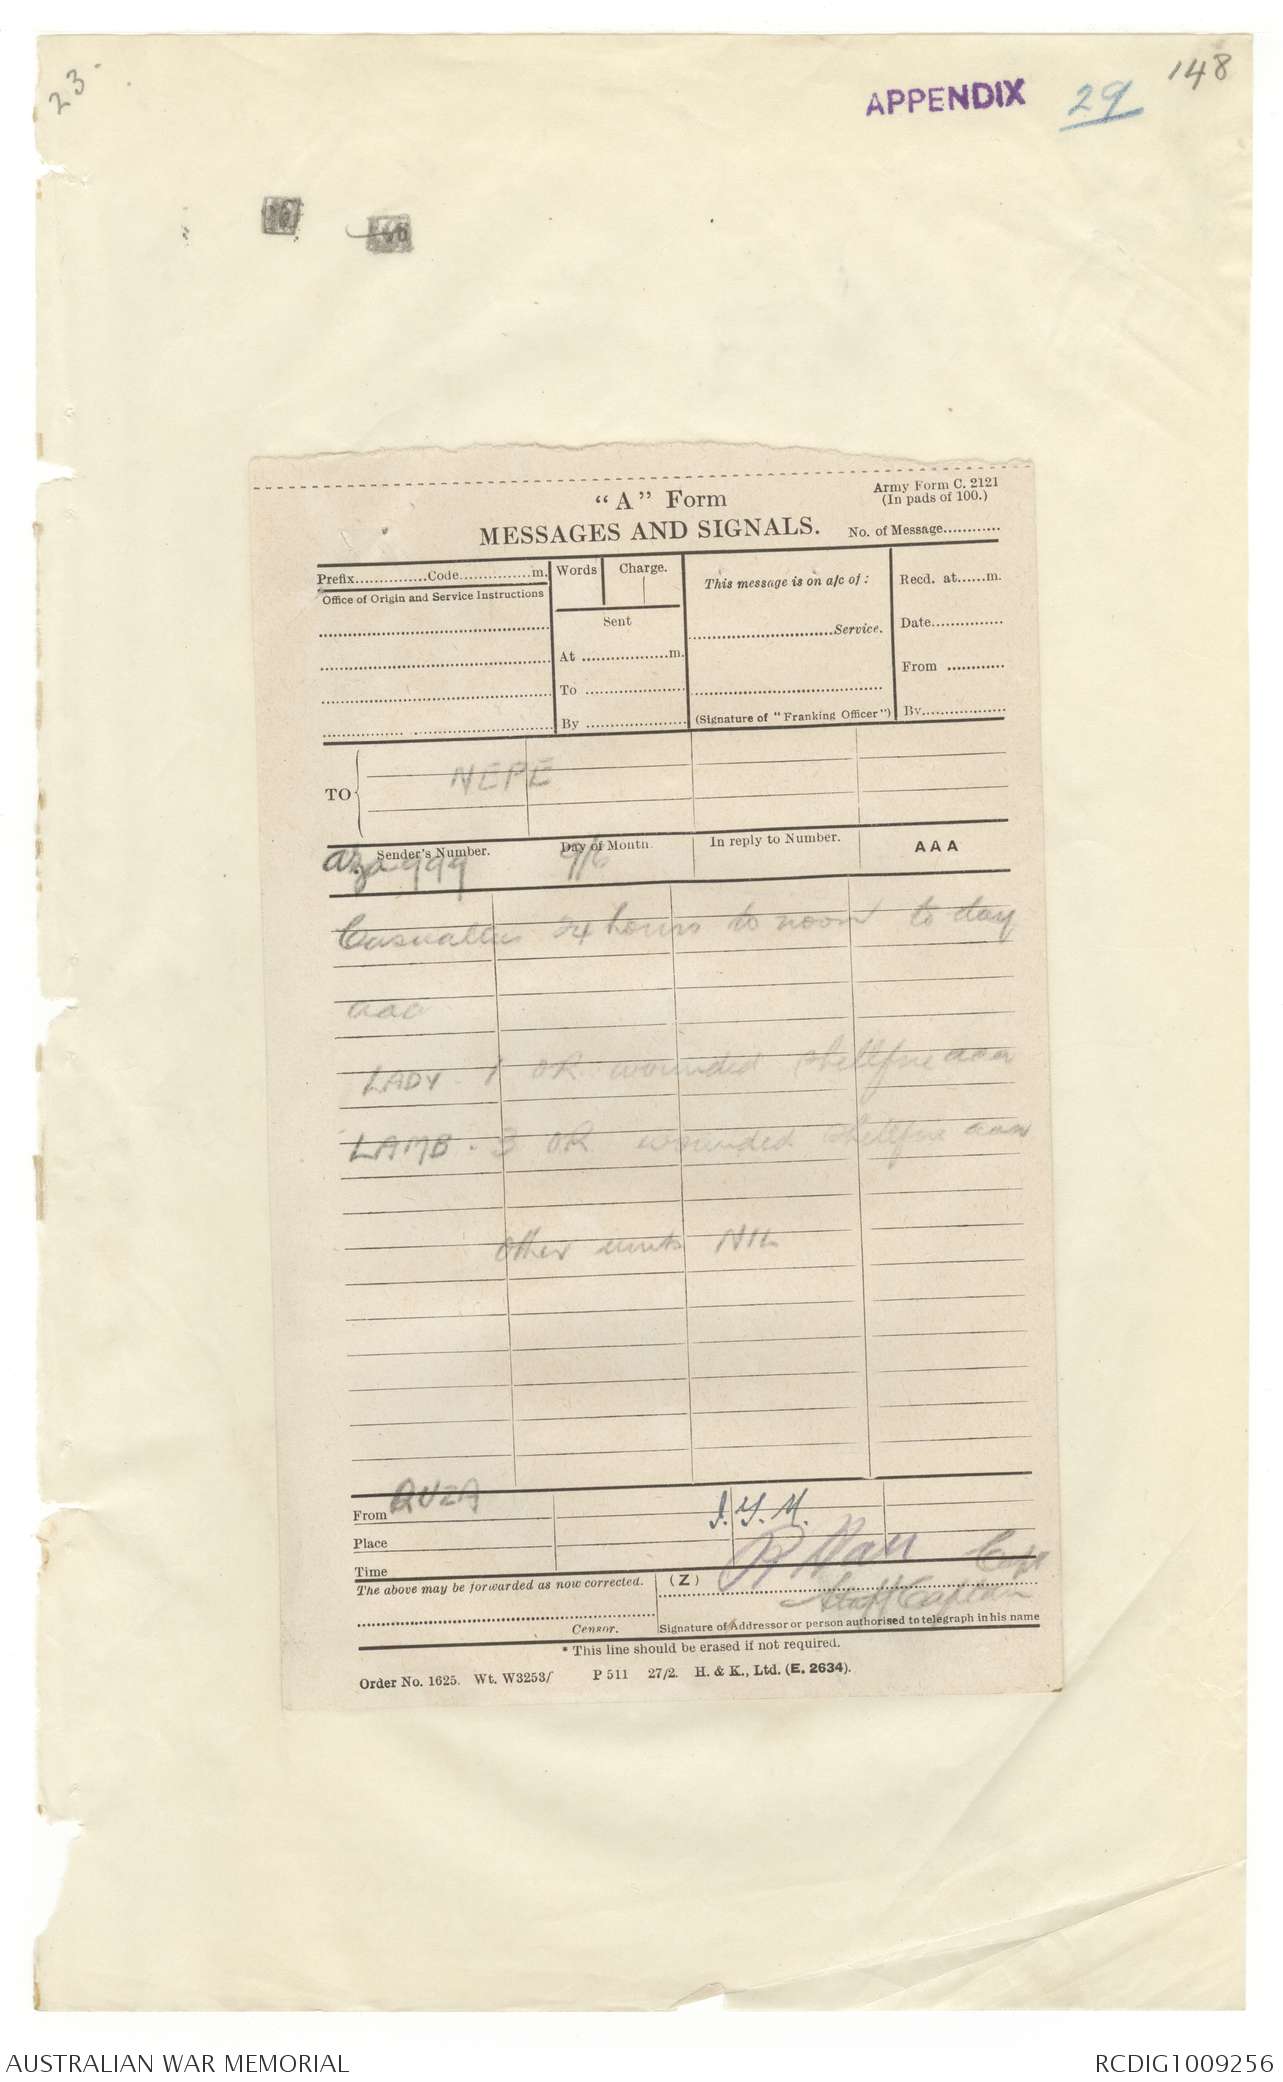 23.
APPENDIX 29 148
"A" Form
Army Form C. 2121
(In pads of 100.)
MESSAGES AND SIGNALS.
No. of Message............
Prefix...............Code...............m.
Words
Charge.
This message is on a/c of:
Recd. at......m.
Office of Origin and Service Instructions
Sent
..............................Service.
Date...............
At ..................m.
From ............
To .....................
By .....................
(Signature of "Franking Officer")
By..................
TO
NEPE
Sender's Number.
Day of Month
In reply to Number.
AAA
999
9/6
Casualties 24 hours to noon to day
aaa
LADY - 1 OR wounded shellfire aaa
LAMB - 3 OR wounded shellfire aaa
Other units NIL
From QUZA
Place
Time
Capt
The above may be forwarded as now corrected.
(Z)
Staff Captain
Censor.
Signature of Addressor or person authorised to telegraph in his name
* This line should be erased if not required.
Order No. 1625. Wt. W3253/ P 511 27/2. H. & K., Ltd. (E. 2634).
AUSTRALIAN WAR MEMORIAL
RCDIG1009256